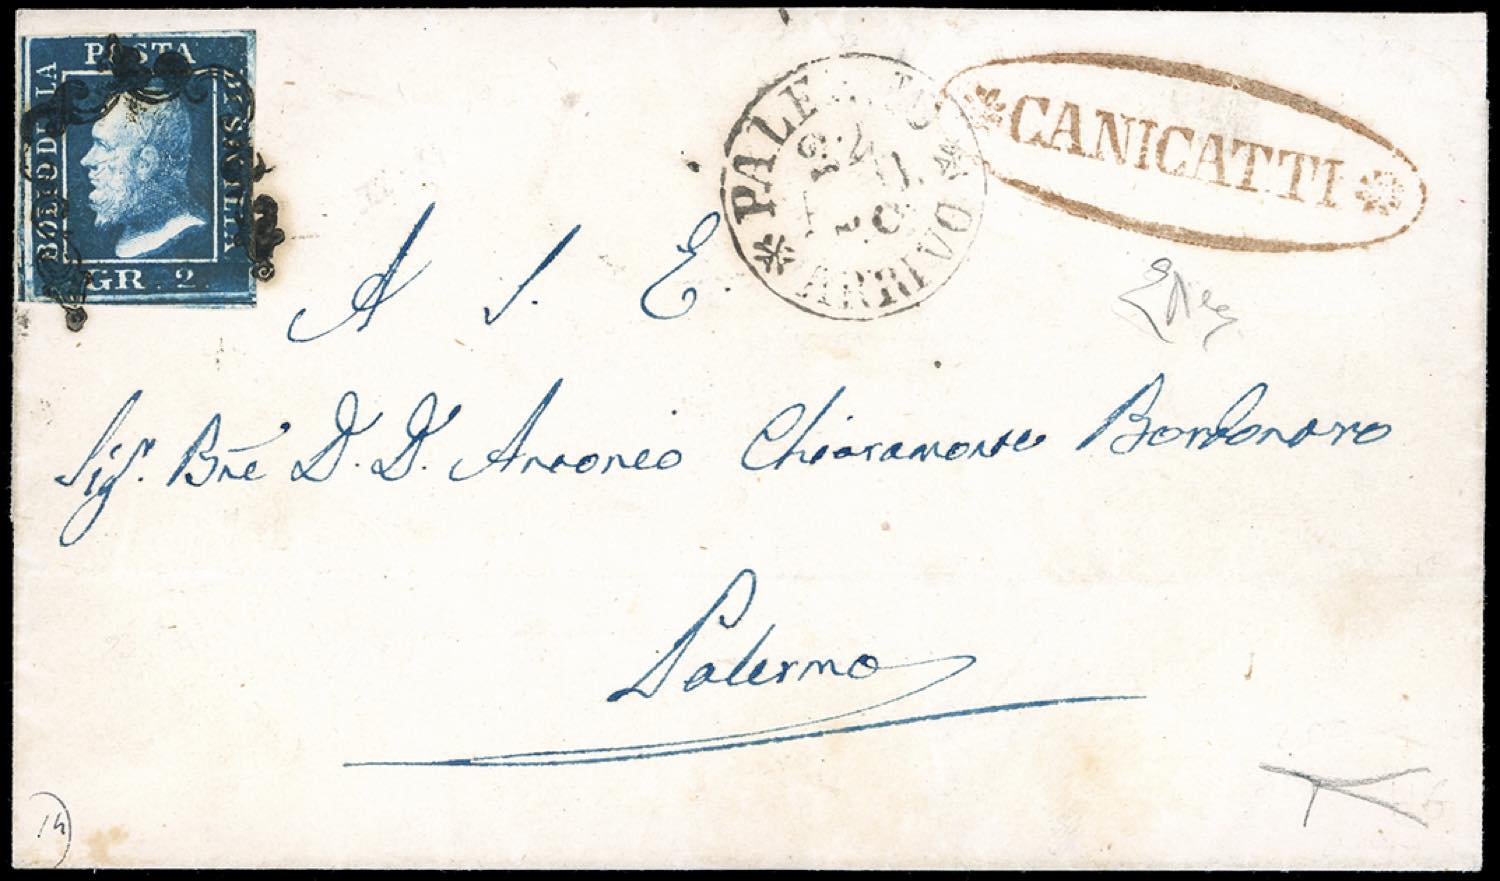 POSTA
BOLLO DELLA
DI SICILIA
GR. 2.
PALERMO
ARRIVO
CANICATTI
A S. E.
Sig.r Bne D. D. Antonio Chiaramonte Bordonaro
Palermo